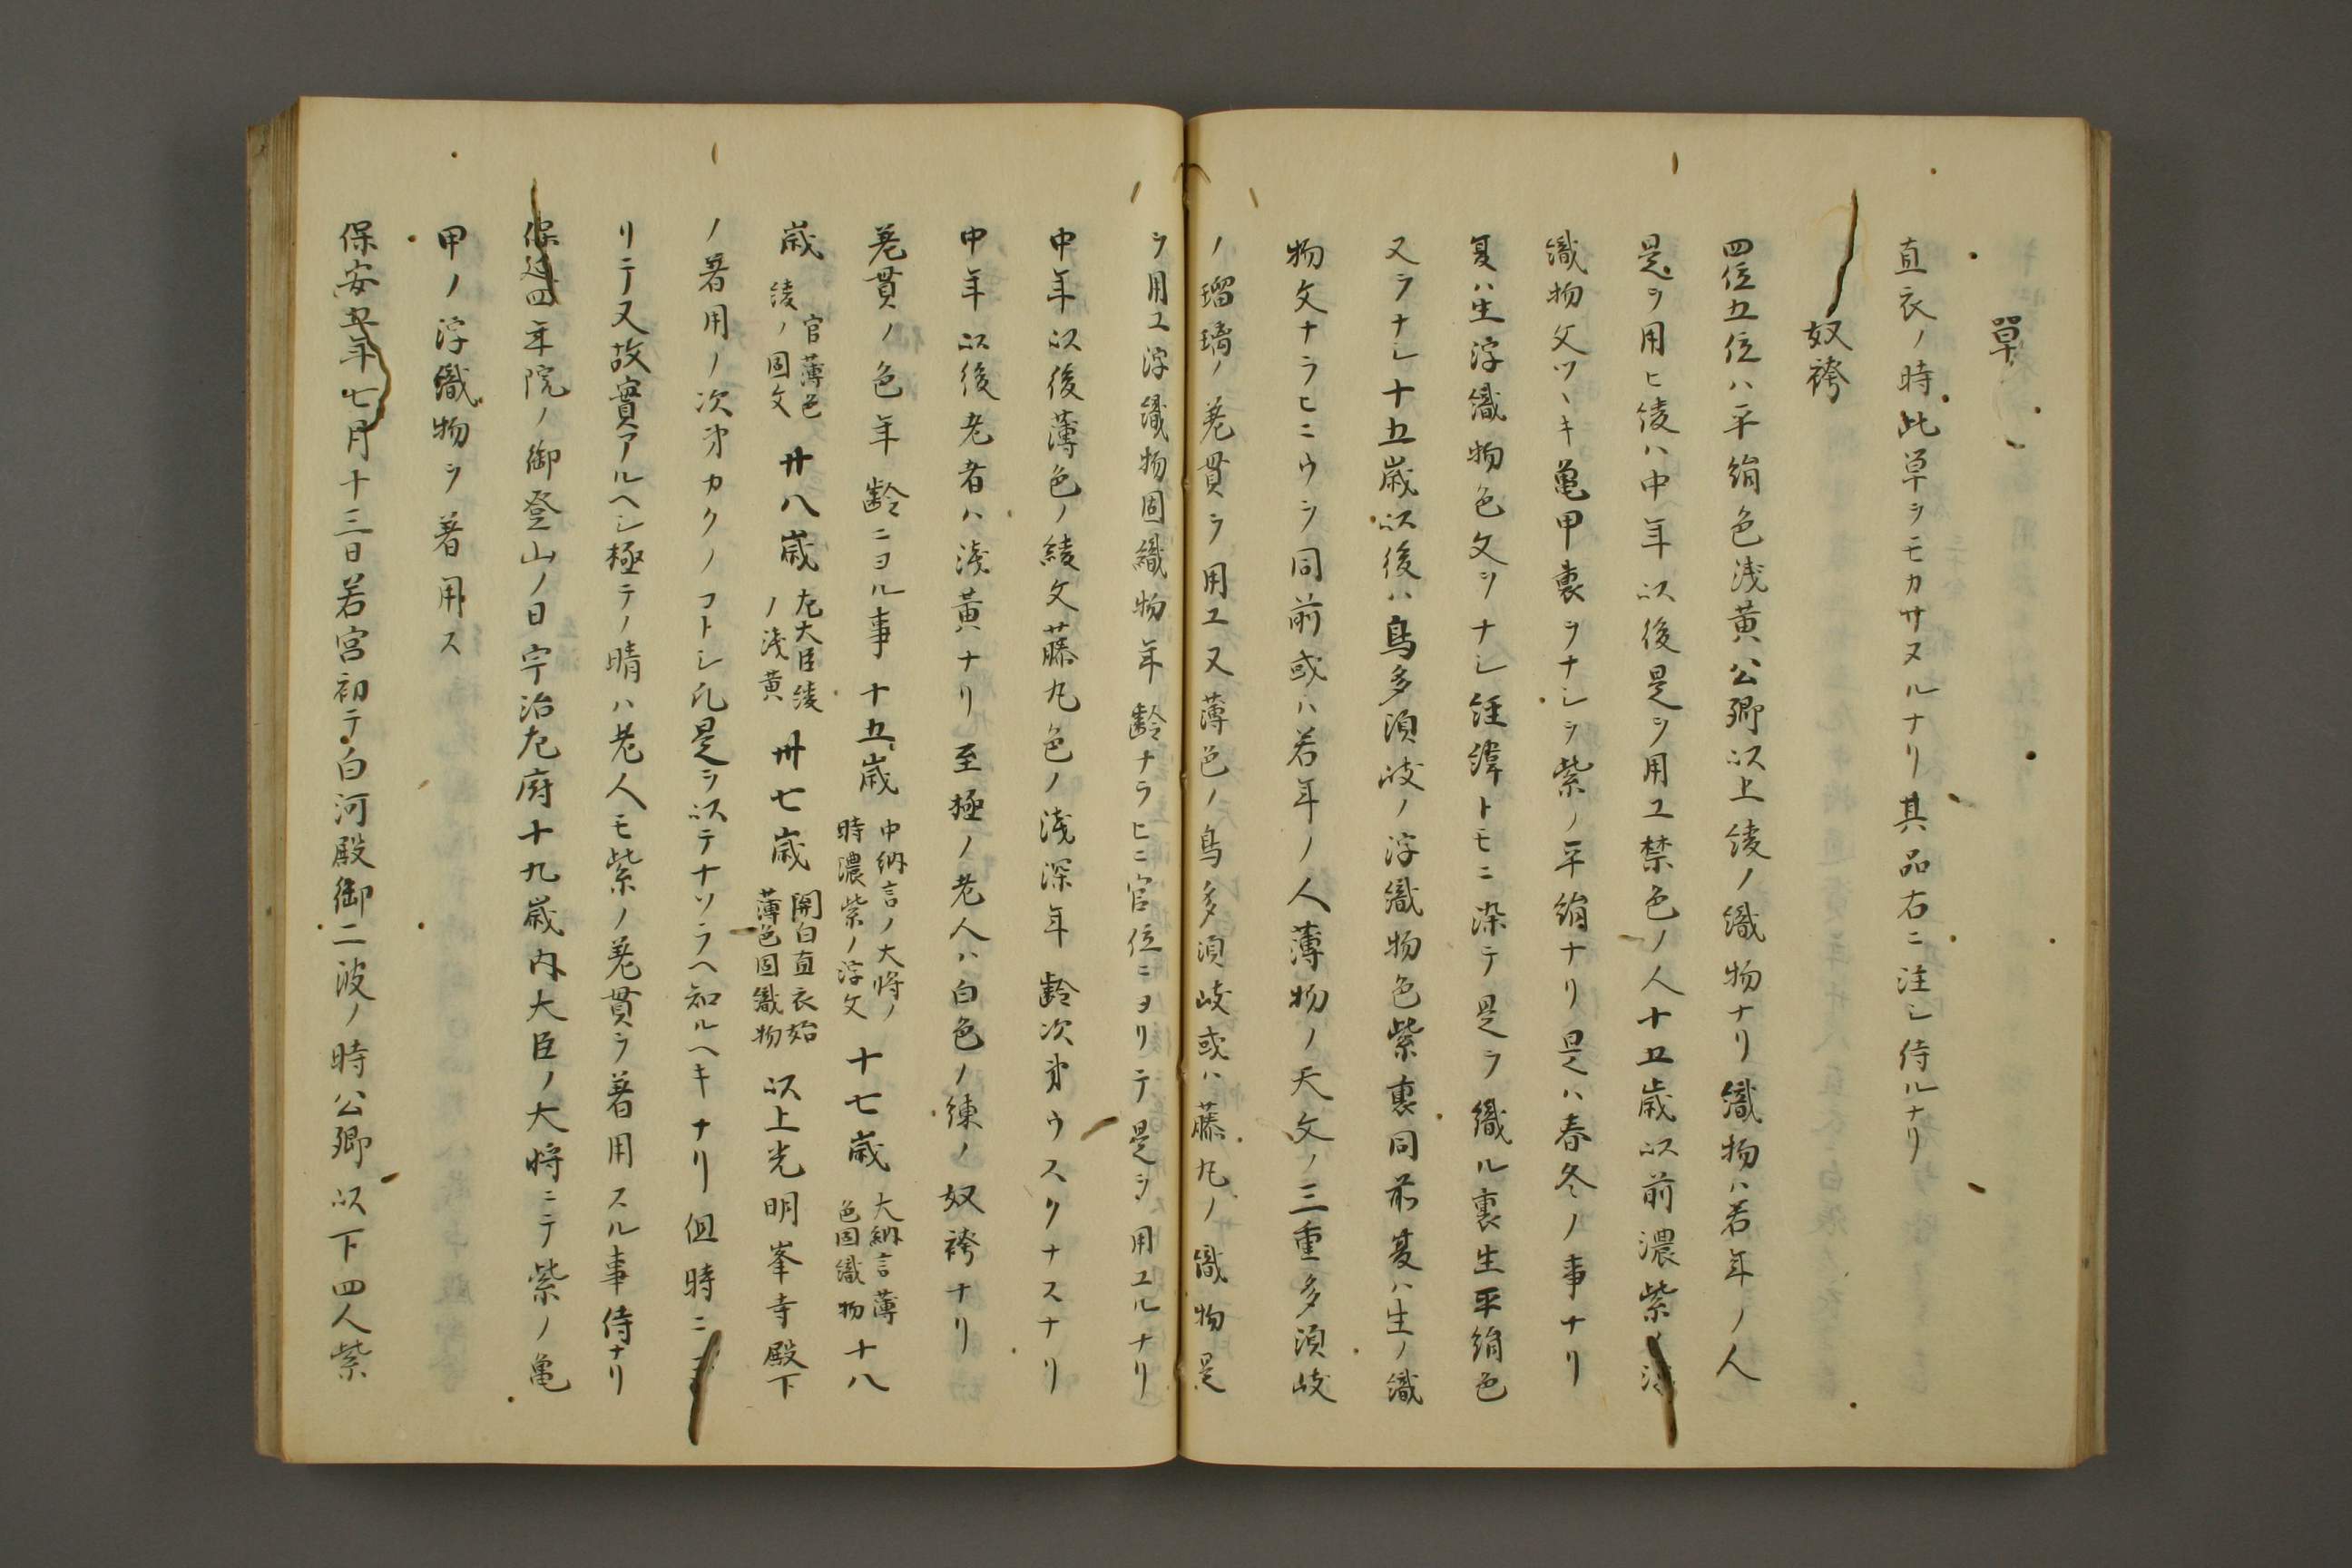 單
直衣ノ時此單ヲモカサヌルナリ其品右ニ注シ侍ルナリ
奴袴
四位五位ハ平絹色浅黄公卿以上綾ノ織物ナリ織物ハ若年ノ人
是ヲ用ヒ綾ハ中年以後是ヲ用ユ禁色ノ人十五歳以前濃紫ノ浮
織物文ツヽキ亀甲裏ヲナシヲ紫ノ平絹ナリ是ハ春冬ノ事ナリ
夏ハ生浮織物色文ヲナシ経緯トモニ染テ是ヲ織ル裏生平絹色
又ヲナシ十五歳以後ハ鳥多須岐ノ浮織物色紫裏同前夏ハ生ノ織
物文ナラヒニウラ同前或ハ若年ノ人薄物ノ天文ノ三重多須岐
ノ瑠璃ノ差貫ヲ用ユ又薄色ノ鳥多須岐或ハ藤丸ノ織物是
ヲ用ユ浮織物固織物年齢ナラヒニ官位ニヨリテ是ヲ用ユルナリ
中年以後薄色ノ綾文藤丸色ノ浅深年齢次第ウスクナスナリ
中年以後老者ハ浅黄ナリ至極ノ老人ハ白色ノ練ノ奴袴ナリ
差貫ノ色年齢ニヨル事十五歳中納言ノ大将ノ時濃紫ノ浮文十七歳大納言薄色固織物十八
歳官薄色綾ノ固文廿八歳左大臣綾ノ浅黄卅七歳関白直衣始薄色固織物以上光明峯寺殿下
ノ著用ノ次第カクノコトシ凡是ヲ以テナソラヘ知ルヘキナリ但時ニ
リテ又故實アルヘシ極テノ晴ハ老人モ紫ノ差貫ヲ著用スル事侍ナリ
保延四年院ノ御登山ノ日宇治左府十九歳内大臣ノ大将ニテ紫ノ亀
甲ノ浮織物ヲ著用ス
保安五年七月十三日若宮初テ白河殿御二渡ノ時公卿以下四人紫